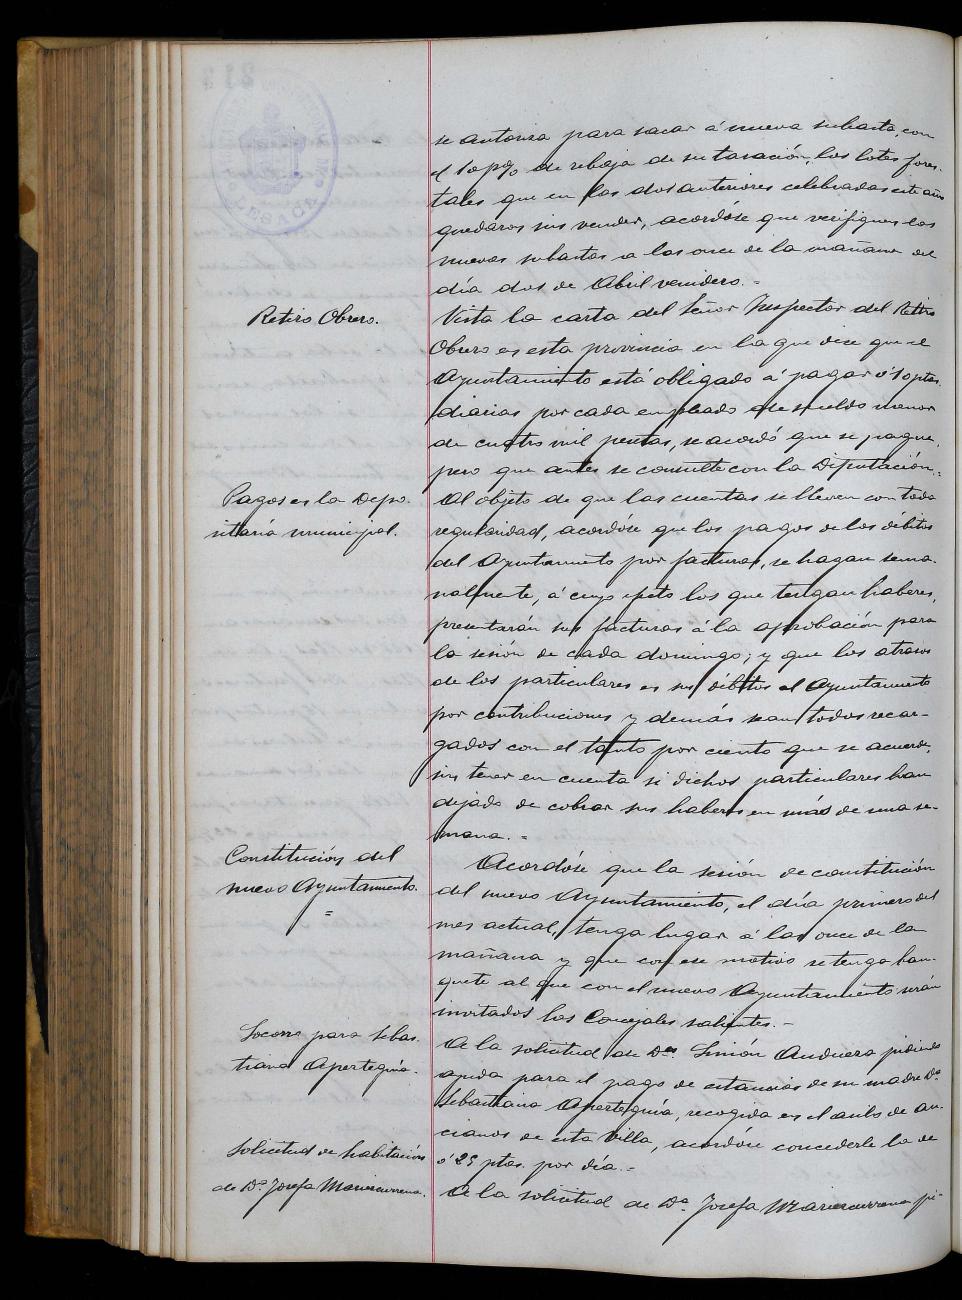 se autoriza para sacar á nueva subasta, con
el 10 p% de rebaja de su tasación, los lotes fores-
tales que en las dos anteriores celebradas este año
quedaron sin vender, acordóse que verifiquen las
nuevas subastas a las once de la mañana del
día dos de Abril venidero.=
Retiro Obrero.
Vista la carta del Señor Inspector del Retiro
Obrero en esta provincia en la que dice que el
Ayuntamiento está obligado á pagar 0'10 ptas.
diarias por cada empleado de sueldo menor
de cuatro mil pesetas, se acordó que se pague,
pero que antes se consulte con la Diputación.=
Pagos en la Depo-
sitaría municipal.
Al objeto de que las cuentas se lleven con toda
regularidad, acordóse que los pagos de los débitos
del Ayuntamiento por facturas, se hagan sema-
nalmente, á cuyo efeto los que tengan haberes,
presentarán sus facturas á la aprobación para
la sesión de cada domingo; y que los atrasos
de los particulares en sus débitos al Ayuntamiento
por contribuciones y demás sean todos recar-
gados con el tanto por ciento que se acuerde,
sin tener en cuenta si dichos particulares han
dejado de cobrar sus haberes en más de una se-
mana.=
Constitución del
nuevo Ayuntamiento.
=
Acordóse que la sesión de constitución
del nuevo Ayuntamiento, el día primero del
mes actual, tenga lugar á las once de la
mañana y que con ese motivo se tenga ban-
quete al que con el nuevo Ayuntamiento serán
invitados los Concejales salientes.-
Socorro para Sebas-
tiana Aperteguía.
A la solicitud de Dn. Simón Andueza pidiendo
ayuda para el pago de estancias de su madre Dª
Sebastiana Aperteguía, recogida en el asilo de an-
cianos de esta Villa, acordóse concederle la de
0'25 ptas. por día.=
Solicitud de habitación
de Dª Josefa Mariezcurrena.
A la solicitud de Dª Josefa Mariezcurrena pi-
LESACA